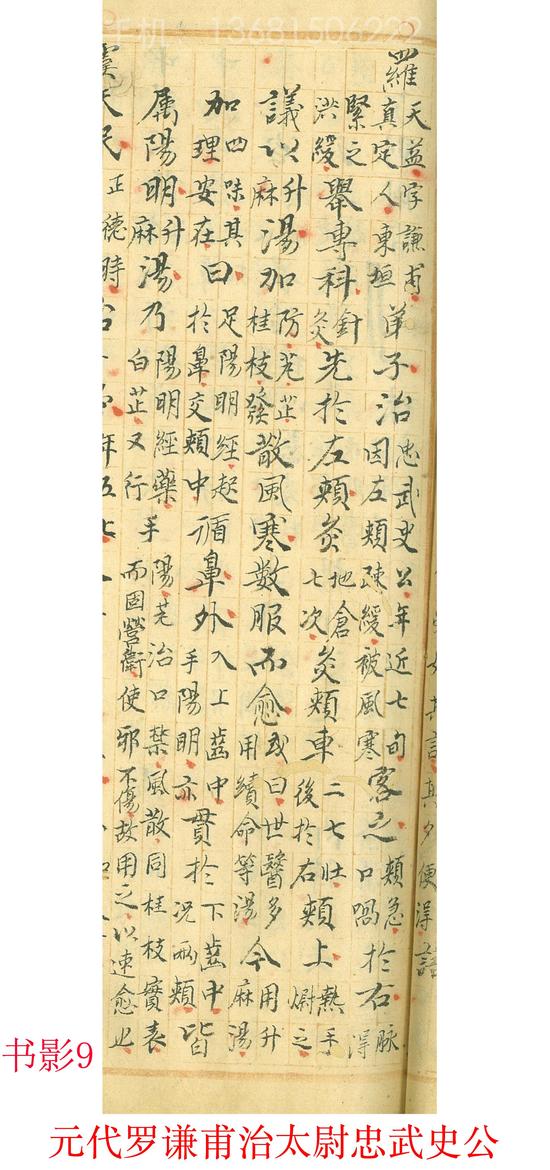 手机：13681506222
羅天益字謙甫真定人東垣弟子治忠武史公年近七旬因左頰疎緩被風寒客之頰急於右口喎於右脈得
洪緩緊之舉專科針灸先於左頰灸地倉七次灸頰車二七壯後於右頰上熱手熨之
議以升麻湯加防芫芷桂枝發散風寒數服而愈或曰世醫多用續命等湯今用升麻湯
加四味其理安在曰足陽明經起於鼻交頰中循鼻外入上齒中手陽明亦貫於下齒中況兩頰皆
屬陽明升麻湯乃陽明經藥白芷又行手陽芫治口禁風散同桂枝實表而固營衛使邪不傷故用之以速愈也
天民正德時
书影9
元代罗谦甫治太尉忠武史公